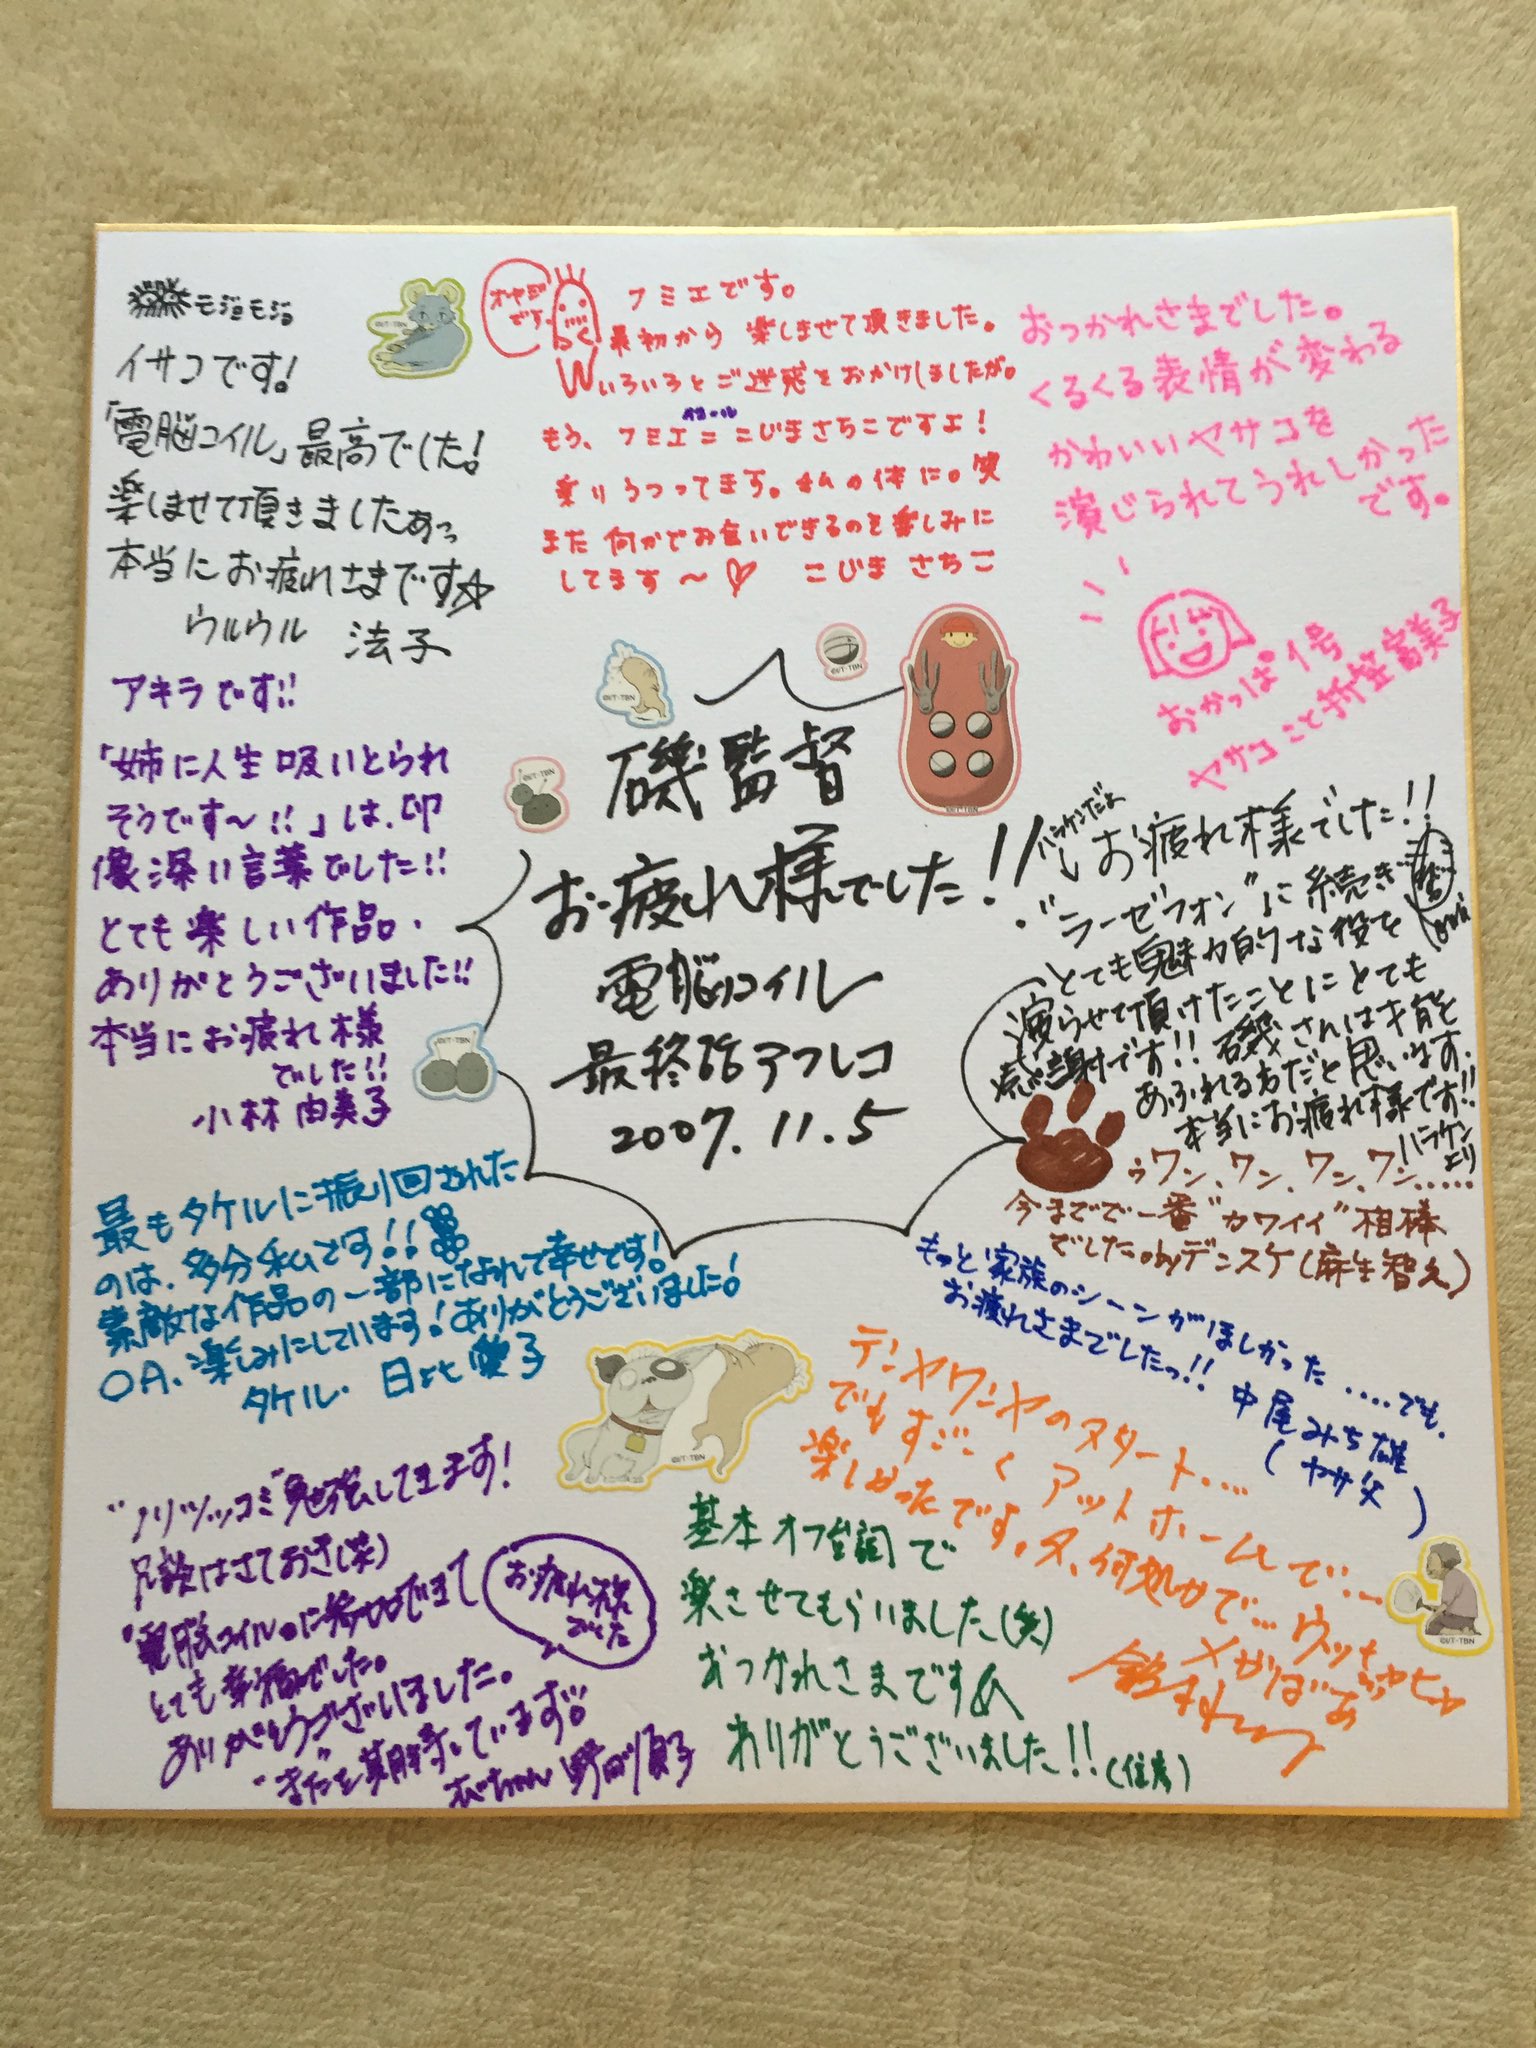 モジョモジョ
イサコです!
「電脳コイル」最高でした!
楽しませて頂きましたぁっ
本当にお疲れさまです☆
ウルウル 法子
オヤジ
です。
フミエです。
最初から 楽しませて頂きました。
いろいろとご迷惑をおかけしましたが。
イコール
もう、フミエ=こじまさちこですよ!
乗りうつってます。私の体に。笑
また何かでお会いできるのを楽しみに
してます〜♡ こじま さちこ
おつかれさまでした。
くるくる表情が変わる
かわいいヤサコを
演じられてうれしかった
です。
おかっぱ1号
ヤサコこと折笠富美子
アキラです!!
「姉に人生吸いとられ
そうです〜!!」は、印
像深い言葉でした!!
とても楽しい作品、
ありがとうございました!!
本当にお疲れ様
でした!!
小林由美子
磯監督
お疲れ様でした!!
電脳コイル
最終話アフレコ
2007.11.5
ハラケンだよ
お疲れ様でした!!
"ラーゼフォン"に続き
とても魅力的な役を
演らせて頂けたことにとても
感謝です!! 磯さんは才能と
あふれる方だと思います。
本当にお疲れ様です!!
ハラケン
より
ゥワン、ワン、ワン、ワン、.....
今までで一番"カワイイ"相棒
でした。byデンスケ(麻生智久)
最もタケルに振り回された
のは、多分私です!!
素敵な作品の一部になれて幸せです!
OA、楽しみにしています!ありがとうございました!
タケル・
もっと家族のシーンがほしかった ....でも、
お疲れさまでしたっ!! 中尾みち雄
(ヤサ父)
テンヤワンヤのスタート....
でもすご〜く アットホームで…
楽しかったです。又、何処かで…ウッヒャヒャ
メガばあ
"ノリツッコミ"勉強してます!
冗談はさておき(笑)
"電脳コイル"に参加できて
とても幸福でした。
ありがとうございました。
"また"を期待しています!!
お疲れ様
でした
野田順子
基本オフ台詞で
楽させてもらいました(笑)
おつかれさまです
ありがとうございました!!
©IT・TBN
©IT・TBN
©IT・TBN
©IT・TBN
©IT・TBN
©IT・TBN
©IT・TBN
©IT・TBN